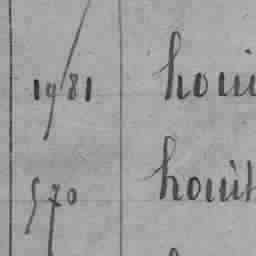 1981 houi
570 houit